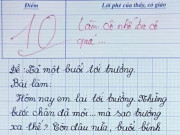 Điểm
Lời phê của thầy, cô giáo
10
Lần có nhớ
quá ...
Đề: Tả một buổi tới trường.
Bài làm:
Hôm nay em lại tới trường. Nhưng
bước chân đã mỏi ... mà sao đường
xa thế? Còn đâu nữa, buổi bình